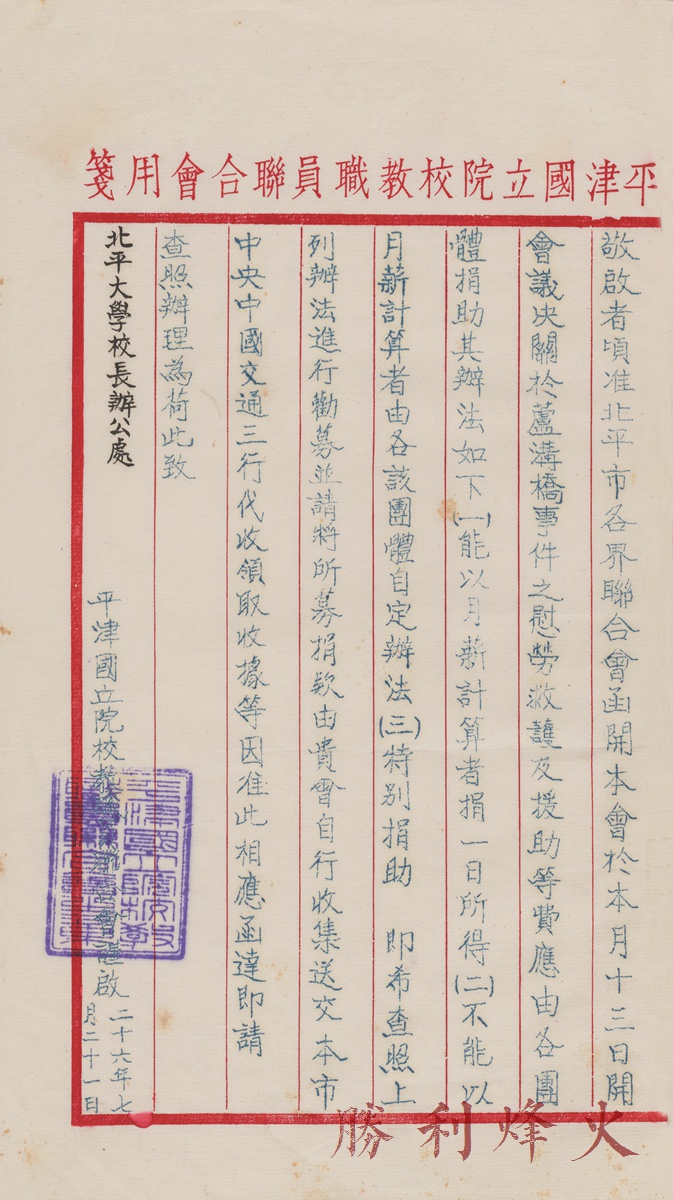 平津國立院校教職員聯合會用箋
敬啟者頃准北平市各界聯合會函開本會於本月十三日開
會議決關於蘆溝橋事件之慰勞救護及援助等費應由各團
體捐助其辦法如下(一)能以月薪計算者捐一日所得(二)不能以
月薪計算者由各該團體自定辦法(三)特別捐助 即希查照上
列辦法進行勸募並請將所募捐欵由貴會自行收集送交本市
中央中國交通三行代收領取收據等因准此相應函達即請
查照辦理為荷此致
北平大學校長辦公處
平津國立院校教職員聯合會謹啟
二十六年七
月二十一日
勝利烽火